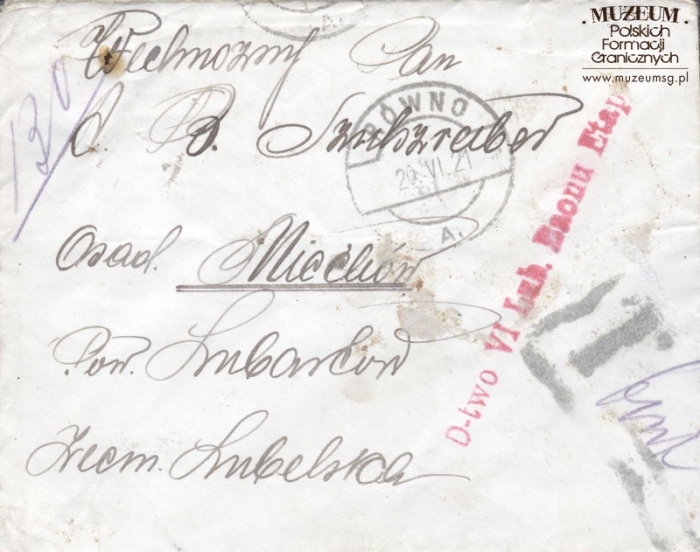 MUZEUM
Polskich
Formacji
Granicznych
www.muzeumsg.pl
Wielmożny Pan
B. Szuchzreiber
RÓWNO
20.VI.21
A.
A.
D-two VI Lub. Baonu Etap
Osad. Miechów
Pow. Lubartów
Ziem. Lubelska